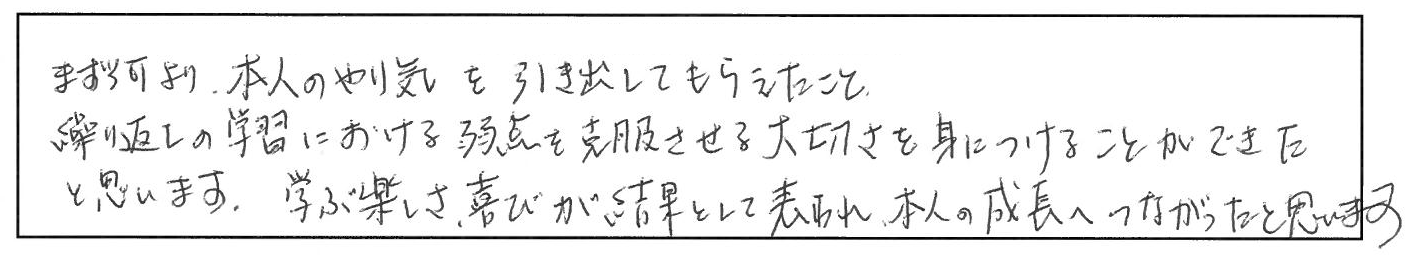 まず何より、本人のやり気を引き出してもらえたこと、
繰り返しの学習における弱点を克服させる大切さを身につけることができた
と思います。学ぶ楽しさ、喜びが結果として表われ、本人の成長へつながったと思います